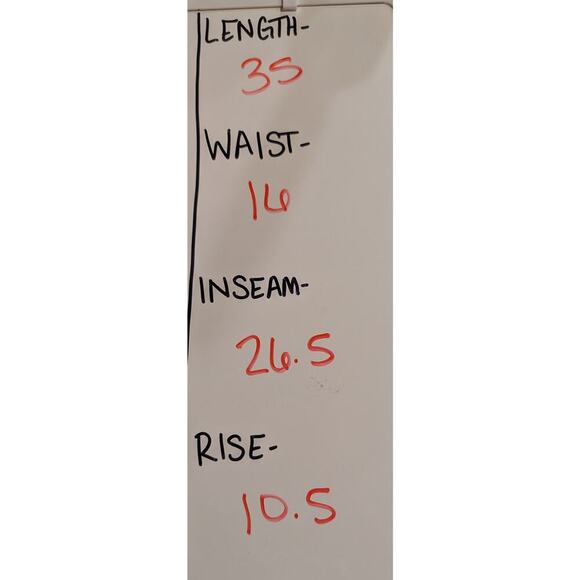 LENGTH-
35
WAIST-
16
INSEAM-
26.5
RISE-
10.5